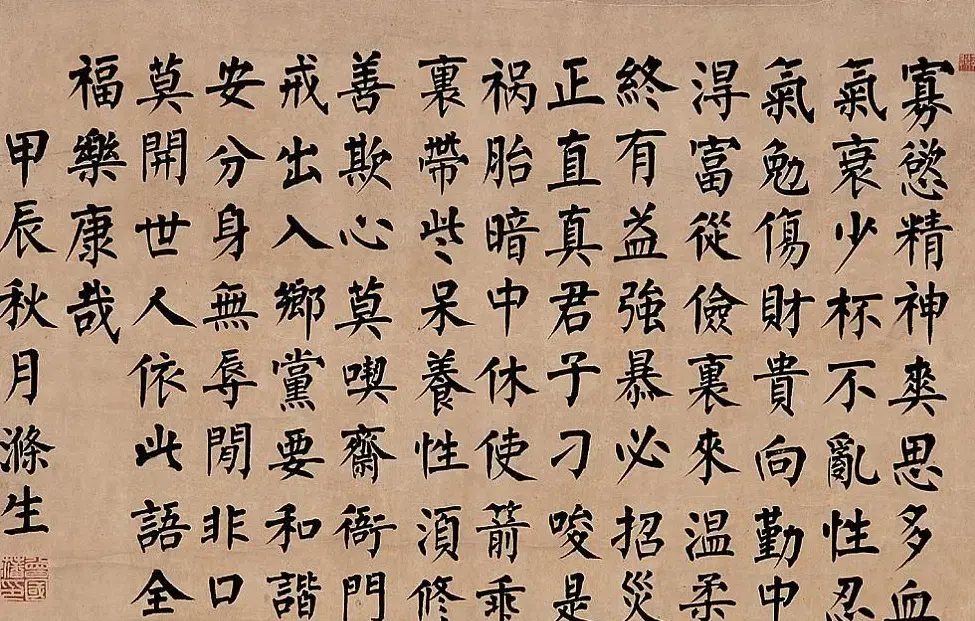 寡慾精神爽思多血
氣衰少杯不亂性忍
氣勉傷財貴向勤中
淂富從儉裏來温柔
終有益強暴必招災
正直真君子刁唆是
祸胎暗中休使箭乖
裏帶些呆養性湏修
善欺心莫喫齋衙門
戒出入鄉黨要和諧
安分身無辱閒非口
莫開世人依此語全
福樂康哉
甲辰秋月滌生